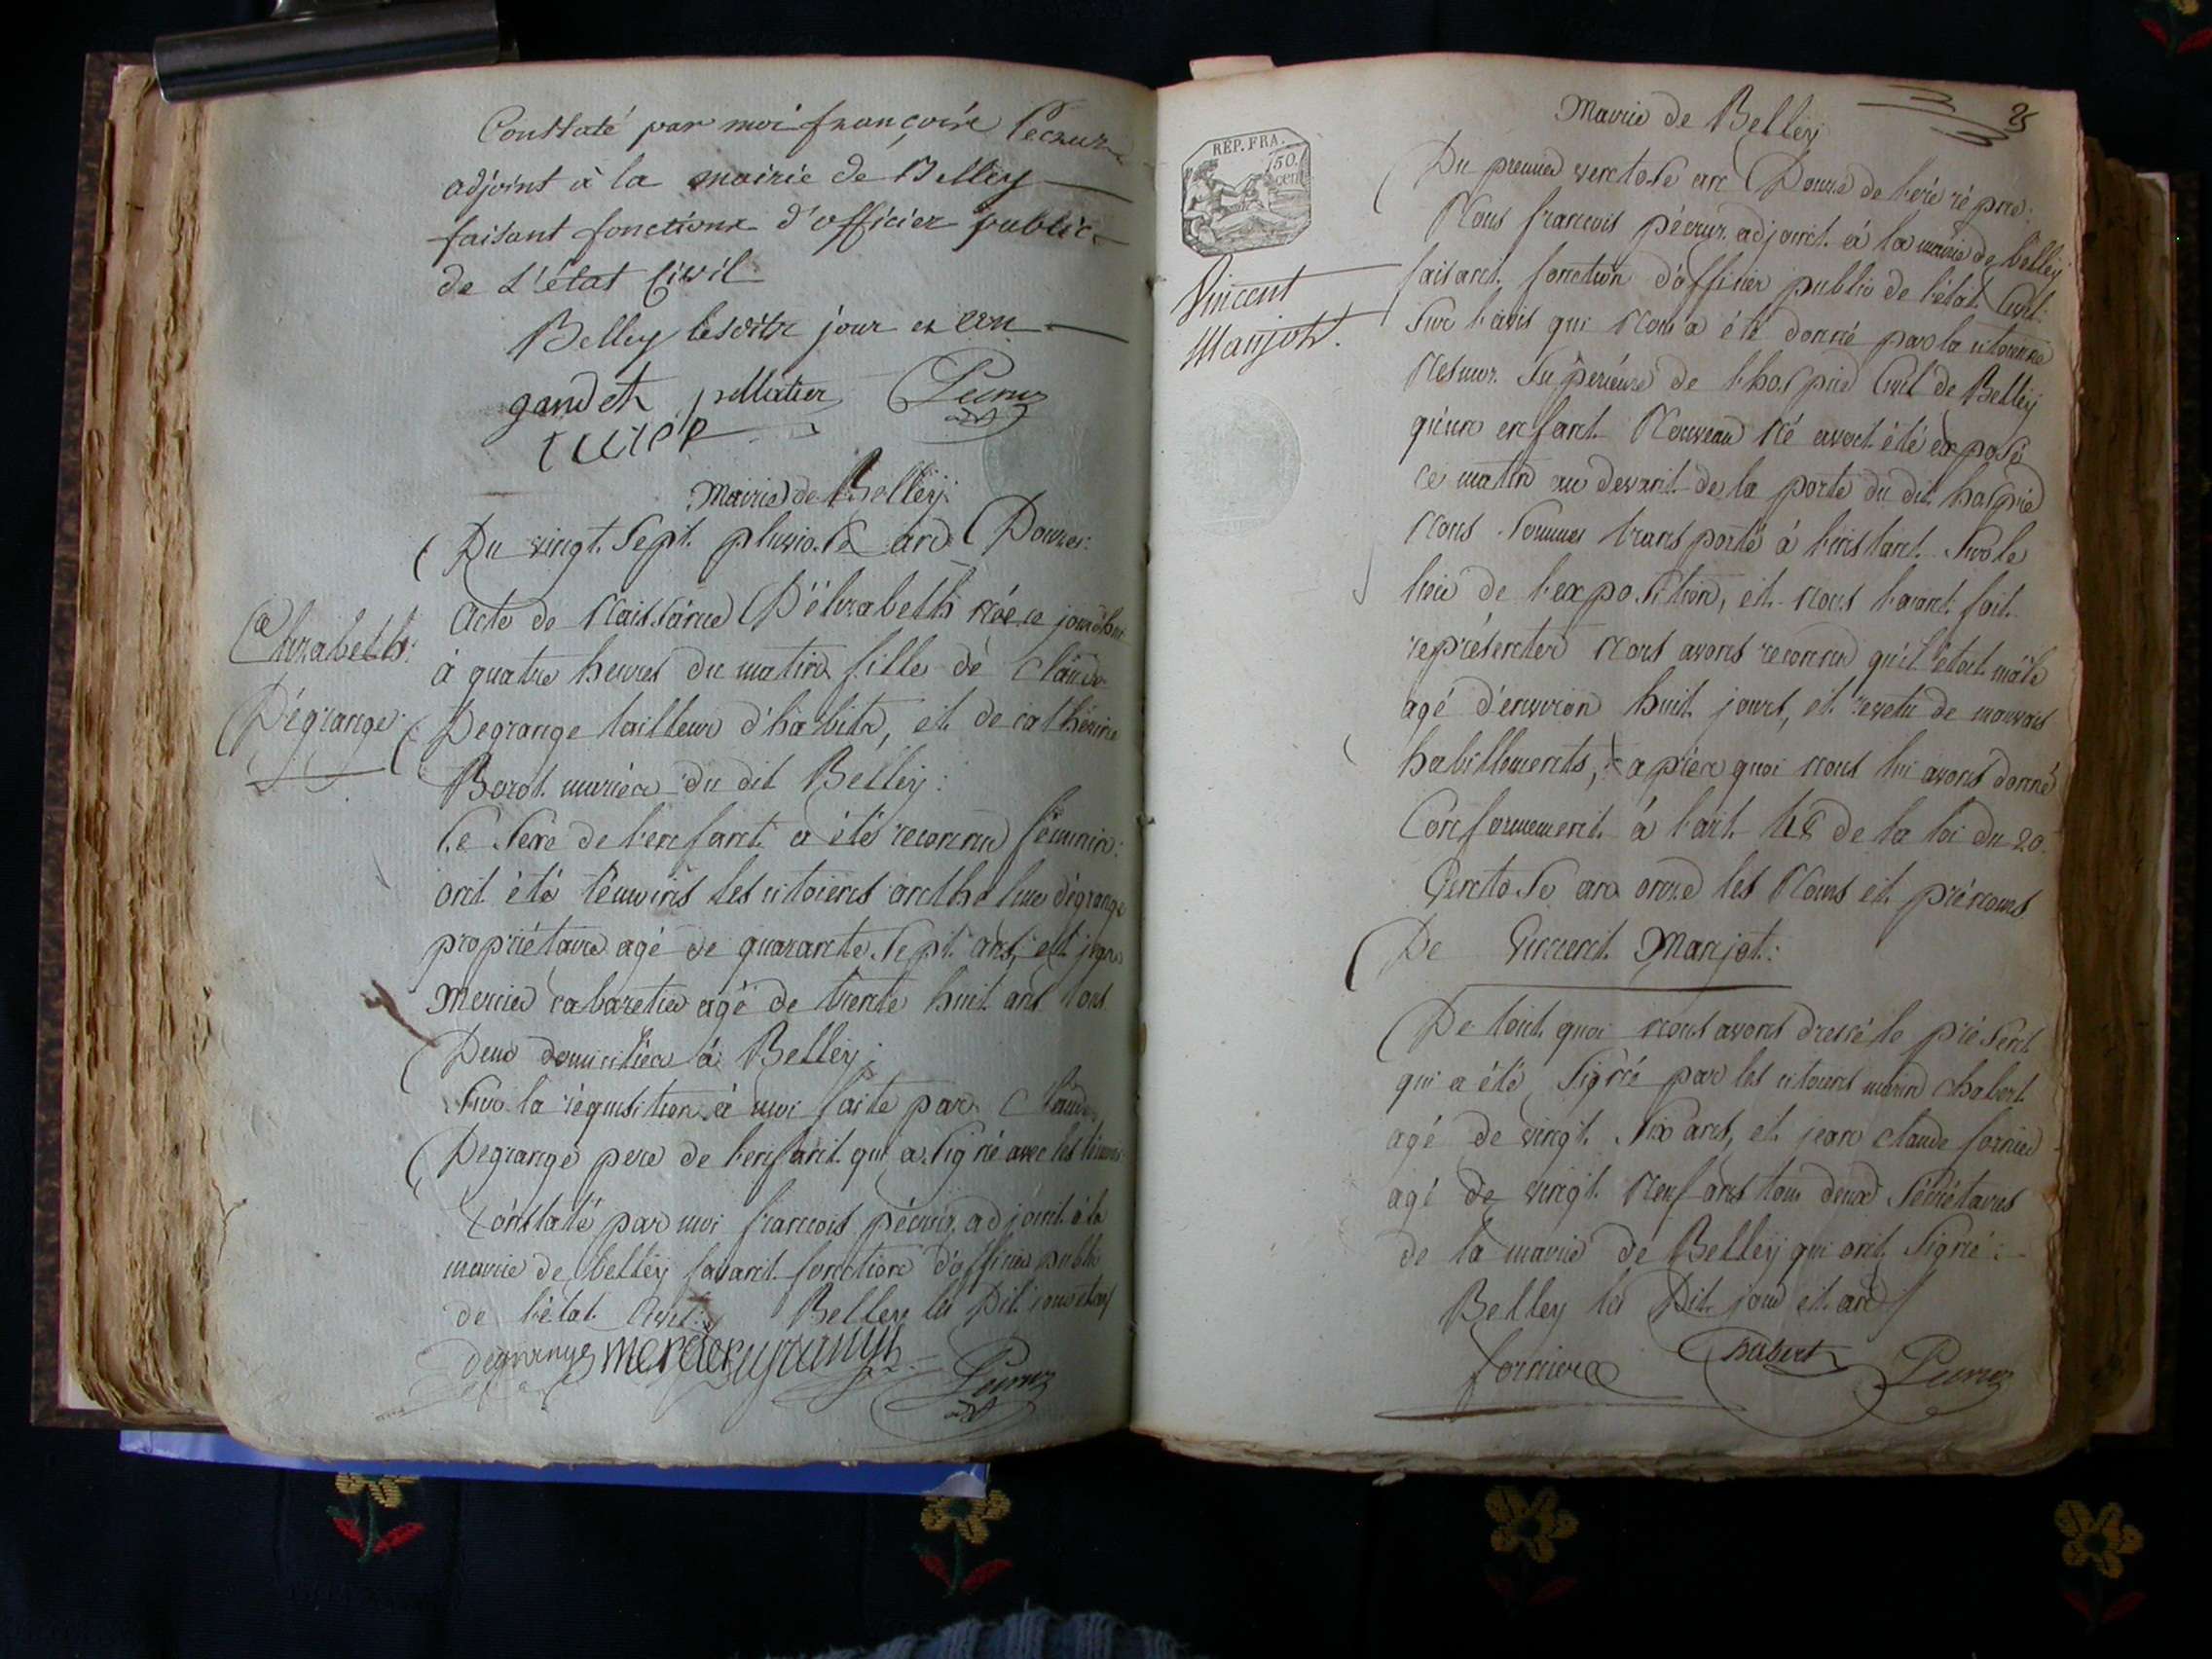 Constaté par moi françois Pécruz
adjoint à la mairie de Belley
faisant fonctions d'officier public
de L'état Civil
Belley lesdits jour et an
gaudet pelletier Pecruz
Mairie de Belley:
Du vingt Sept pluviose an Douze:
Elizabeth
Dégrange
Acte de Naissance D'élizabeth née ce jourd'hui
à quatre heures du matin fille de Claude
Degrange tailleur d'habits, et de cathérine
Borot mariés du dit Belley:
Le Sexe de l'enfant a été reconnu féminin:
ont été témoins les citoiens anthelme dégrange
propriétaire agé de quarante Sept ans, et jean
Mercier cabaretier agé de trente huit ans tous
Deux domiciliés à Belley:
Sur la réquisition à moi faite par Claude
Degrange pere de l'enfant qui a signé avec les témoins
Constaté par moi francois pécruz adjoint à la
mairie de belley faisant fonction d'officier public
de l'état Civil: Belley les Dit jour et an
degrange mercier Pecruz
25
Mairie de Belley
RÉP. FRA.
50
cent
Vincent
Manjot.
Du premier ventose an Douze de l'ére répne:
Nous francois pécruz adjoint à la mairie de belley
faisant fonction d'officier public de l'état Civil:
Sur l'avis qui Nous a été donné par la citoienne
Supérieure de l'hospice Civil de Belley
qu'un enfant Nouveau né avoit été exposé
ce matin au devant de la porte du dit hospice
Nous Sommes transporté à l'instant Sur le
lieu de l'exposition, et nous l'aiant fait
représenter nous avons reconnu qu'il étoit mâle
agé d'environ huit jours, et revetu de mauvais
habillements, après quoi nous lui avons donné
Conformement à l'art de la loi du 20
Ventose an onze les Noms et prénoms
De Vincent Manjot:
De tout quoi nous avons dressé le présent
qui a été Signé par les citoiens marin chabert
agé de vingt Six ans, et jean claude fornier
agé de vingt Neuf ans tous deux Sécrétaires
de la mairie de Belley qui ont Signé:
Belley les Dit jour et an
fornier Chabert Pecruz